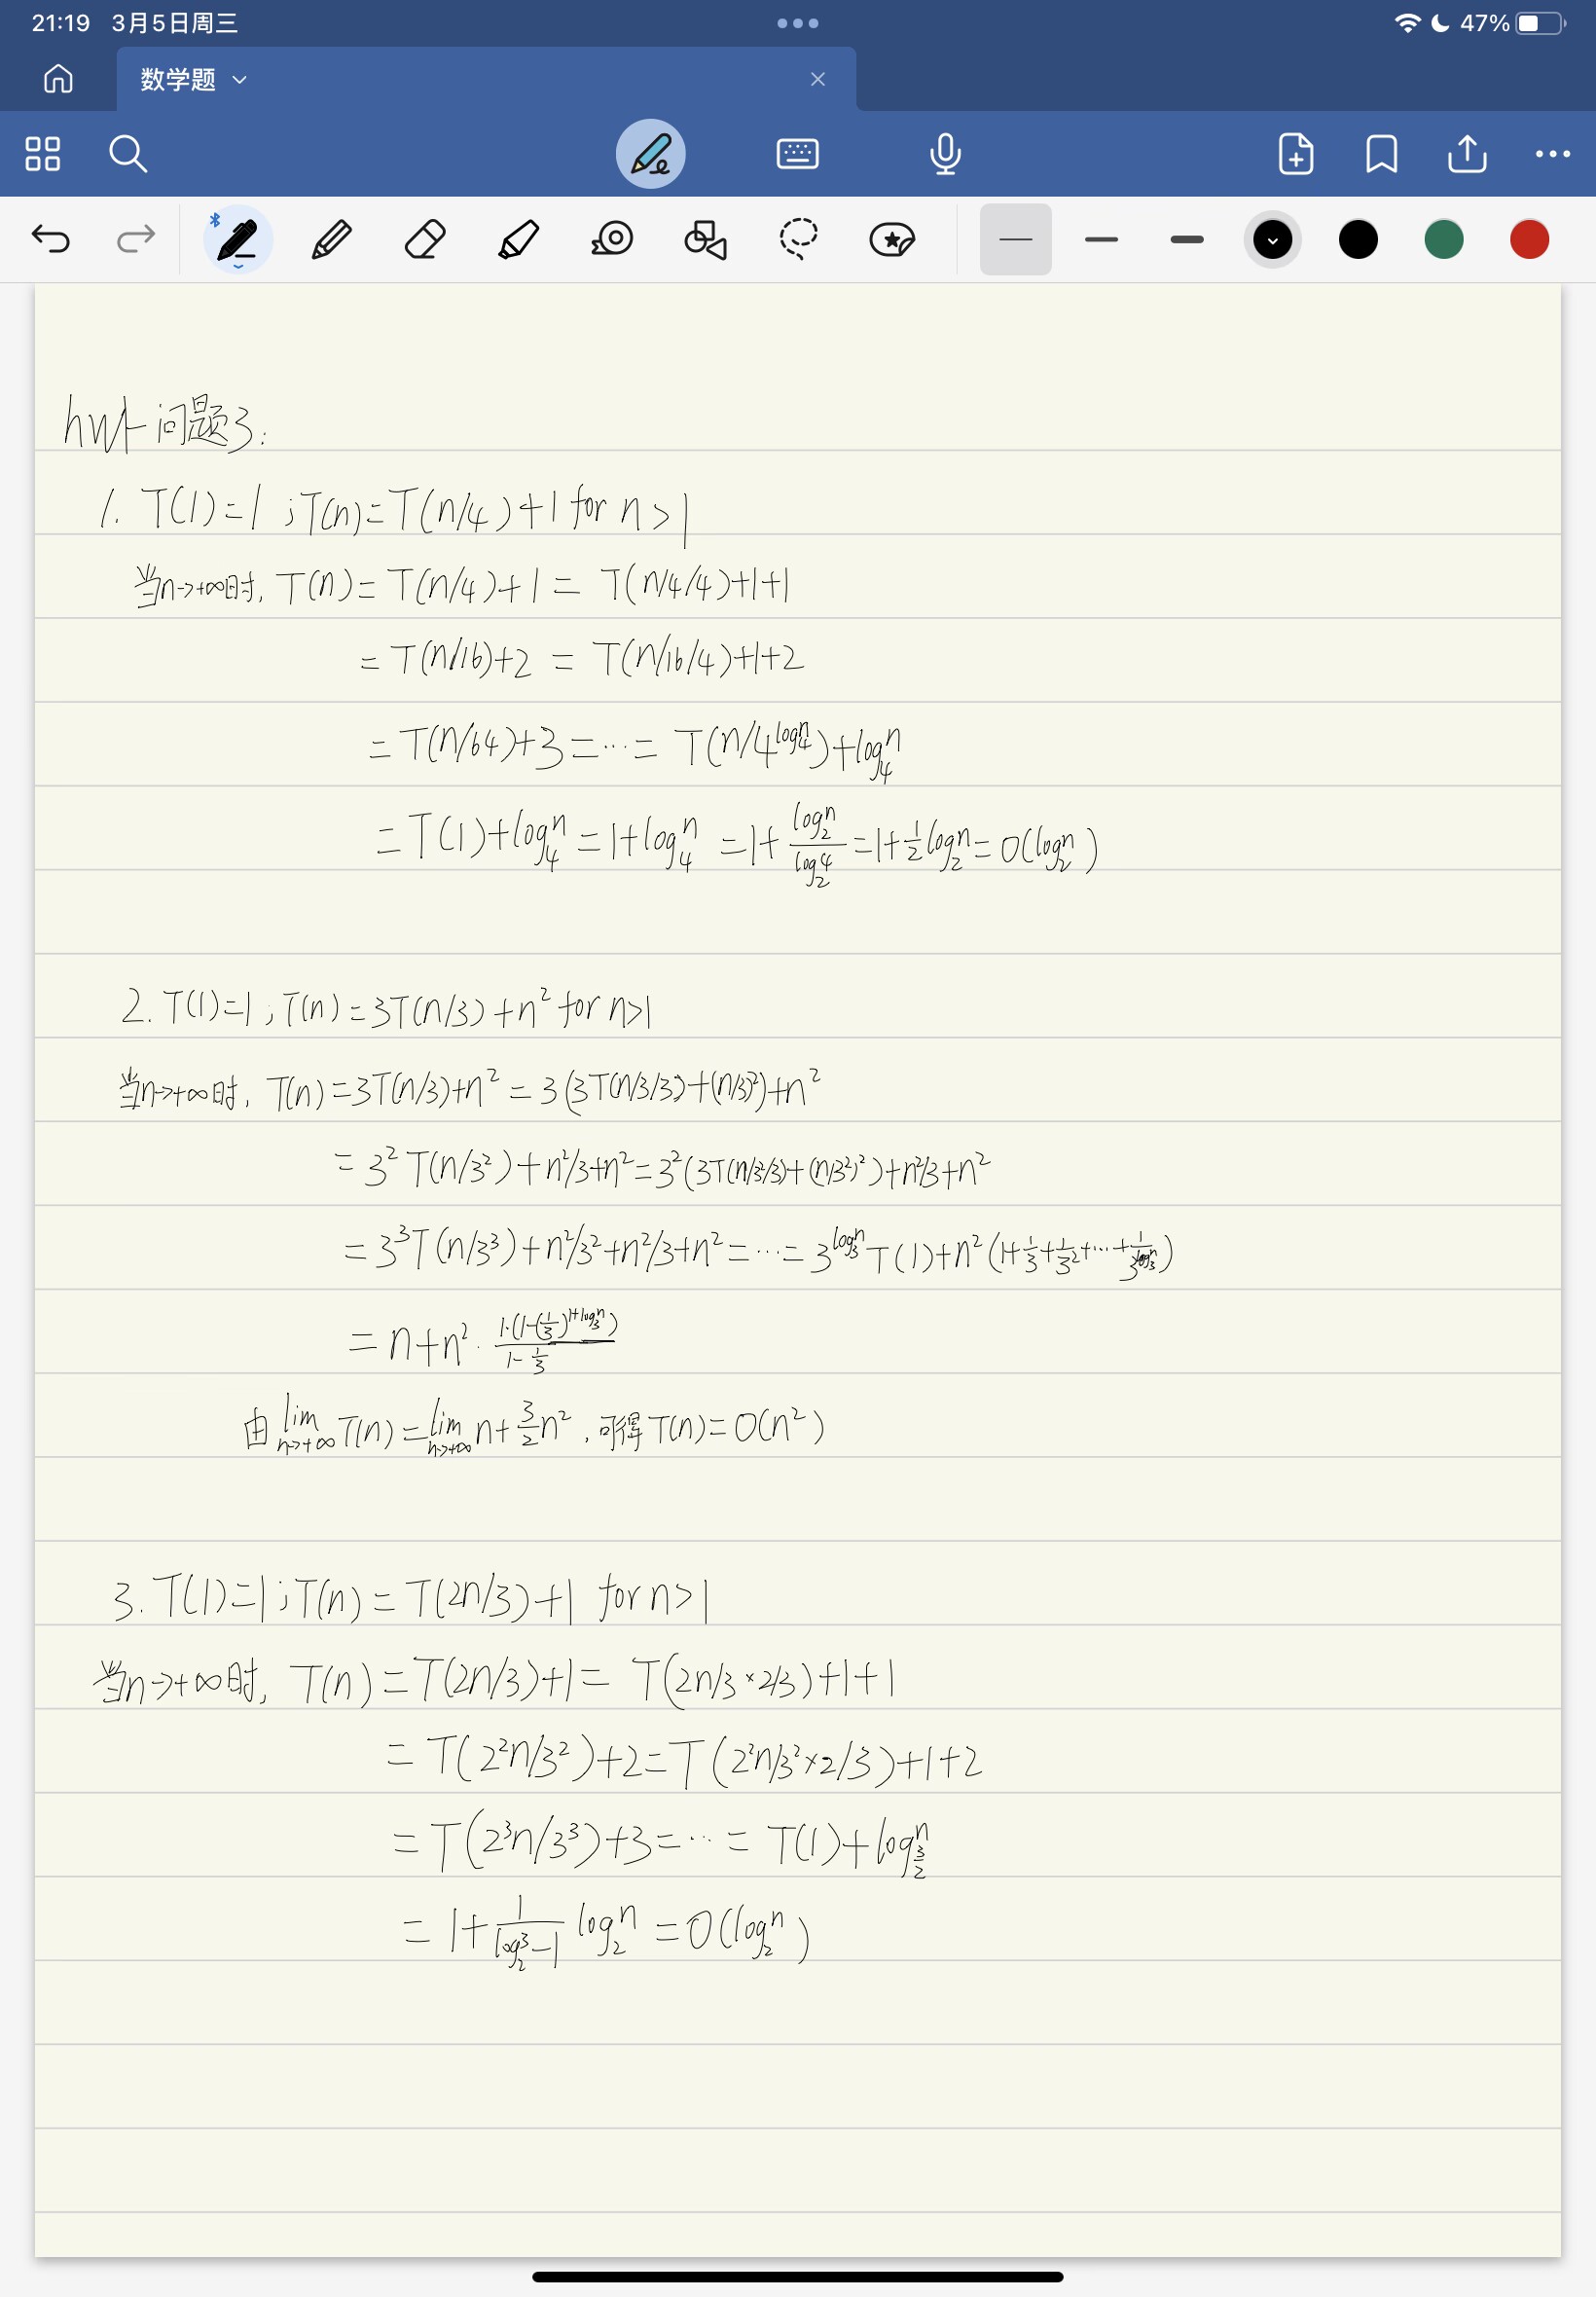 21:19 3月5日周三
47%
数学题
hw1 问题3:
1. T(1)=1 ; T(n)=T(n/4)+1 for n>1
当n→+∞时, T(n)=T(n/4)+1= T(n/4/4)+1+1
=T(n/16)+2 = T(n/16/4)+1+2
=T(n/64)+3=…= T(n/4^{log_4^n})+log_4^n
=T(1)+log_4^n=1+log_4^n =1+\frac{log_2^n}{log_2^4}=1+\frac{1}{2}log_2^n=O(log_2^n)
2. T(1)=1 ; T(n)=3T(n/3)+n² for n>1
当n→+∞时, T(n)=3T(n/3)+n²=3(3T(n/3/3)+(n/3)²)+n²
=3²T(n/3²)+n²/3+n²=3²(3T(n/3²/3)+(n/3²)²)+n²/3+n²
=3³T(n/3³)+n²/3²+n²/3+n²=…=3^{log_3^n}T(1)+n²(1+\frac{1}{3}+\frac{1}{3²}+…+\frac{1}{3^{log_3^n}})
=n+n²·\frac{1·(1-(\frac{1}{3})^{1+log_3^n})}{1-\frac{1}{3}}
由\lim_{n→+∞}T(n)=\lim_{n→+∞}n+\frac{3}{2}n², 可得T(n)=O(n²)
3. T(1)=1 ; T(n)=T(2n/3)+1 for n>1
当n→+∞时, T(n)=T(2n/3)+1= T(2n/3×2/3)+1+1
=T(2²n/3²)+2=T(2²n/3²×2/3)+1+2
=T(2³n/3³)+3=…= T(1)+log_{\frac{3}{2}}^n
=1+\frac{1}{log_2^3-1}log_2^n=O(log_2^n)